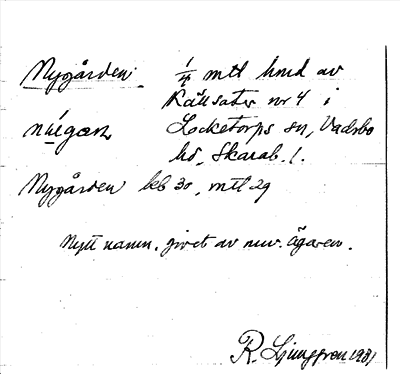 Nygården. 1/4 mtl hmd av
Källsäter nr 4 i
Locketorps sn, Vadsbo
hd, Skarab. l.
Nygården kb 30, mtl 29
Nytt namn, givet av nuv. ägaren.
R. Ljunggren 1931